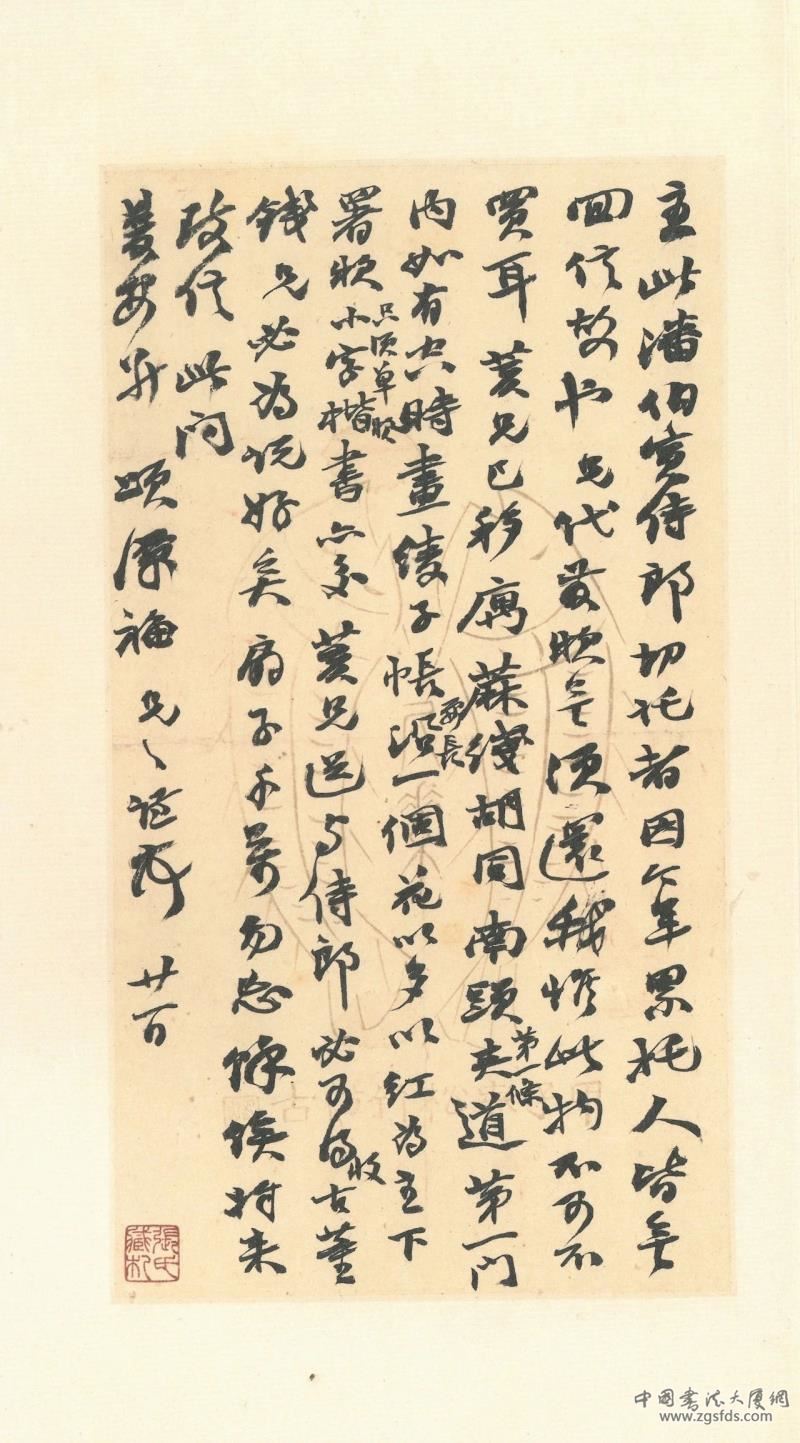 主此潘伯寅侍郎切托者因今年累托人皆無
回信故也兄代發款無須還我惟此物不可不
買耳 蓂兄已移寓蔴線胡同南頭夾道第一門
第一條
內如有空時畫綾子帳沿一個花以多以紅為主下
要長
署款小字楷書亦交蓂兄送与侍郎必可得古董
只須草款
收
錢兄必為說好矣扇子千萬勿忘餘俟將來
改信 此问
蓂安 頌潭福兄 廿百
張氏藏札
中國書法大廈網
www.zgsfds.com